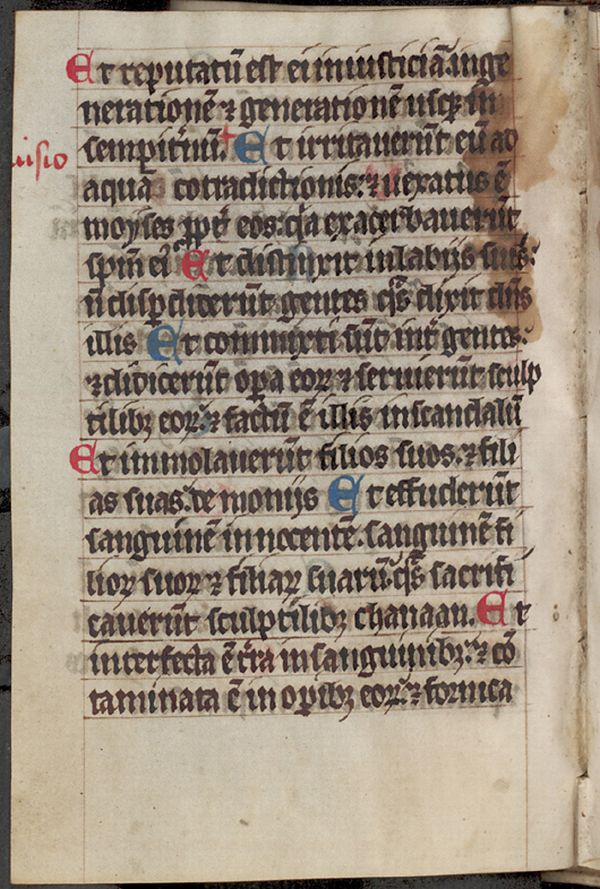 Et reputatū est ei in iusticiā. in ge
nerationē ⁊ generationē usq; in
sempit̄nū. Et irritauerūt eū ad
uisio
aquā cotradictionis: ⁊ uexatus ē
moyses ꝓpt̄ eos: q̄a exacerbauerūt
sp̄m eiꝰ Et distinxit in labijs suis:
n̄ disp̄diderūt gentes q̄s dixit dn̄s
illis Et commixti sūt int̄ gentes:
⁊ didicerūt oꝑa eoꝝ ⁊ seruierūt sculp
tilibꝫ eoꝝ: ⁊ factū ē illis in scandalū
Et immolauerūt filios suos: ⁊ fili
as suas. demonijs Et effuderūt
sanguinē innocentē. sanguinē fi
lioꝝ suoꝝ ⁊ filiaꝝ suarū: q̄s sacrifi
cauerūt sculptilibꝫ chanaan. Et
interfecta ē t̄ra in sanguinibꝫ: ⁊ cō
taminata ē in oꝑibꝫ eoꝝ: ⁊ fornica